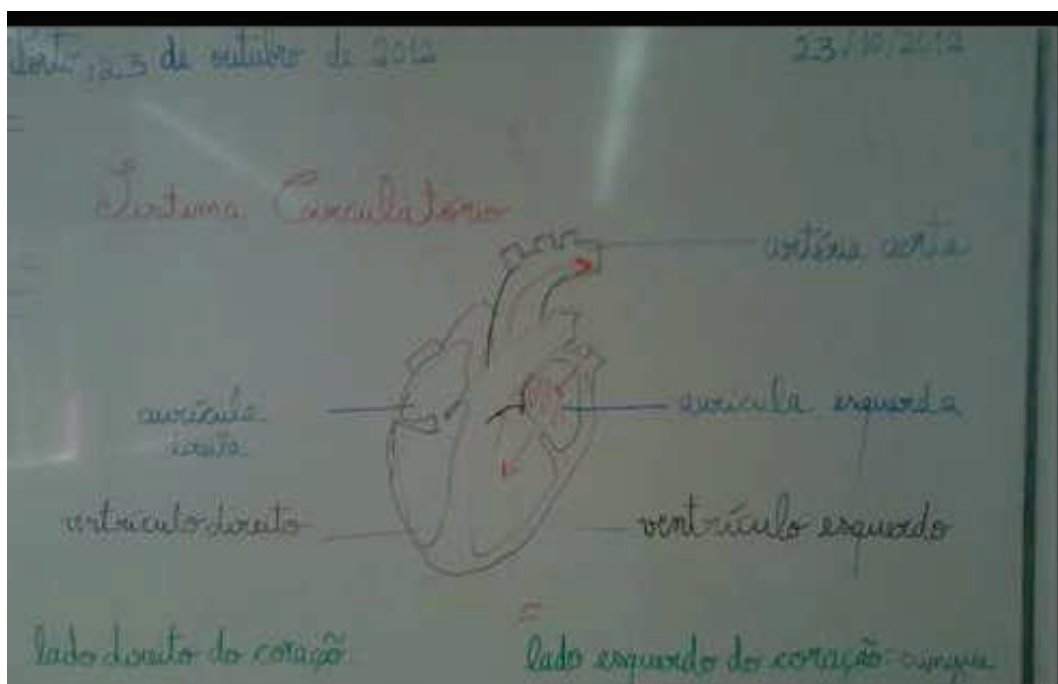 23 de outubro de 2012
23/10/2012
Sistema Circulatório
artéria aorta
aurícula
direita
aurícula esquerda
ventrículo direito
ventrículo esquerdo
lado direito do coração:
lado esquerdo do coração: sangue